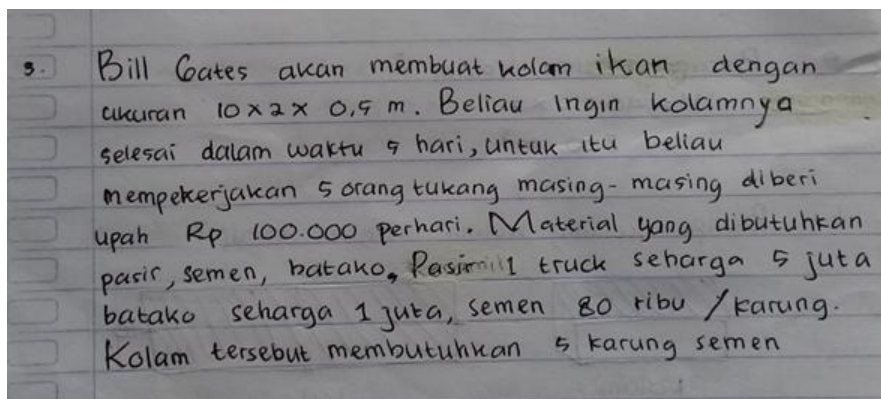 3. Bill Gates akan membuat kolam ikan dengan
ukuran 10 x 2 x 0,5 m. Beliau Ingin kolamnya
selesai dalam waktu 5 hari, untuk itu beliau
mempekerjakan 5 orang tukang masing-masing diberi
upah Rp 100.000 perhari. Material yang dibutuhkan
pasir, semen, batako. Pasir 1 truck seharga 5 juta
batako seharga 1 juta, semen 80 ribu / karung.
Kolam tersebut membutuhkan 5 karung semen